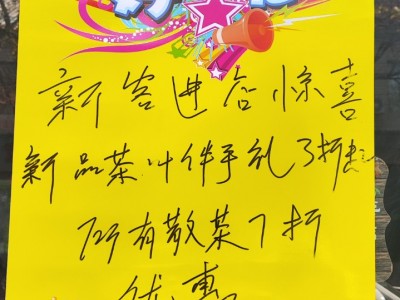 新客进店惊喜
新品茶叶伴手礼3折起
所有散菜7折
优惠